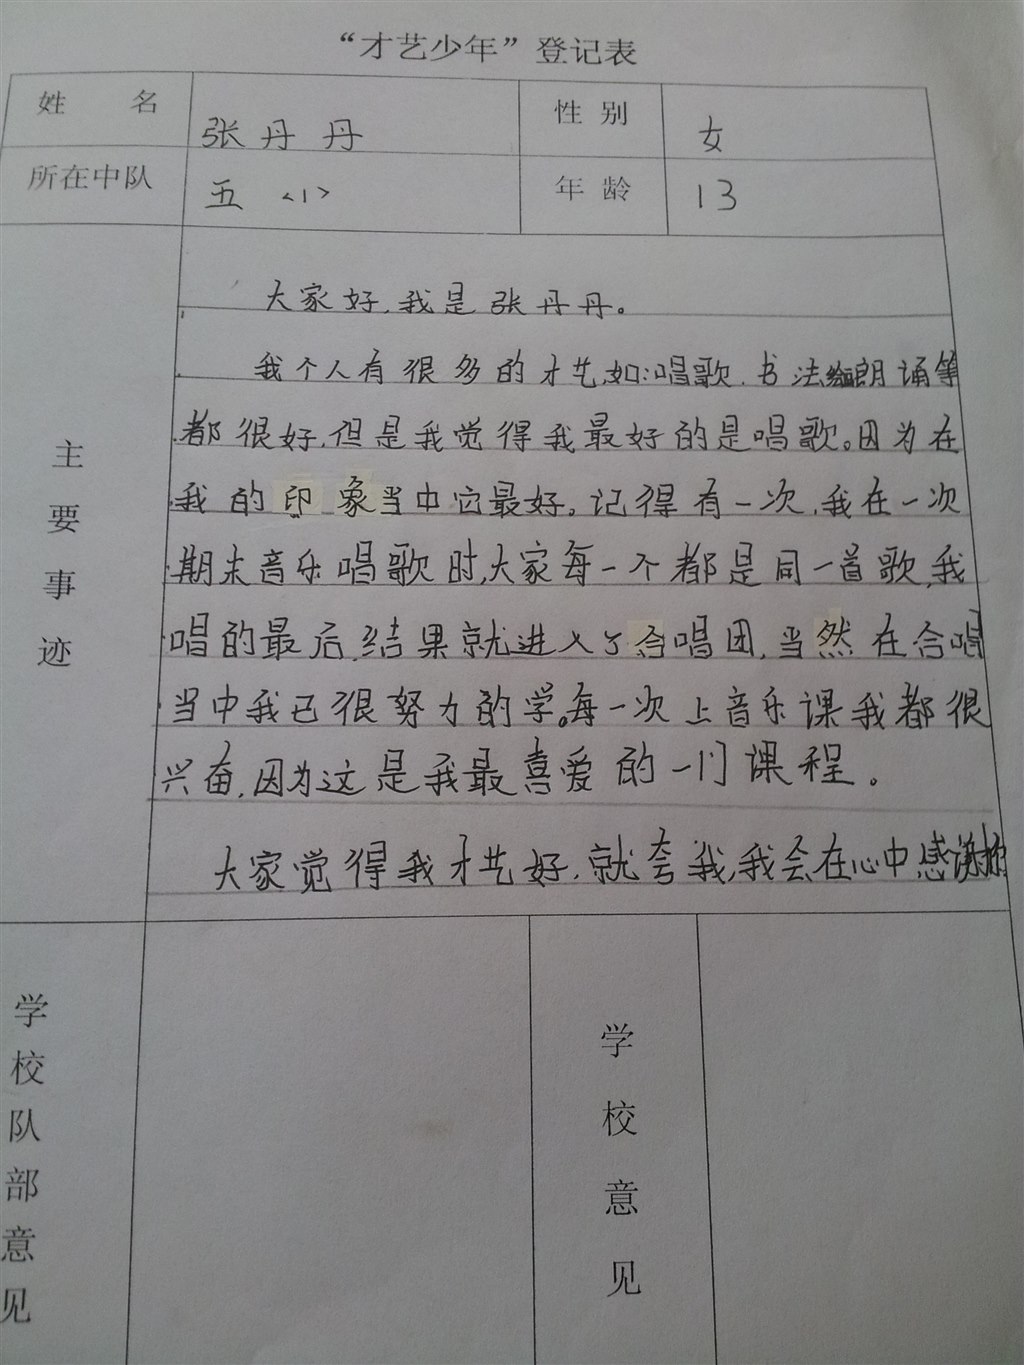 “才艺少年”登记表
姓 名 张丹丹 性别 女
所在中队 五 <1> 年龄 13
主要事迹
大家好,我是张丹丹。
我个人有很多的才艺,如:唱歌、书法绘画朗诵等
都很好,但是我觉得我最好的是唱歌。因为在
我的印象当中它最好。记得有一次,我在一次
期末音乐唱歌时,大家每一个都是同一首歌,我
唱的最后,结果就进入了合唱团,当然在合唱
当中我已很努力的学。每一次上音乐课我都很
兴奋,因为这是我最喜爱的一门课程。
大家觉得我才艺好,就夸我,我会在心中感谢
学校队部意见
学校意见